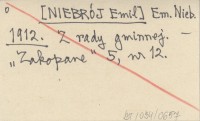 [NIEBRÓJ Emil] Em. Nieb.
1912. Z rady gminnej. —
„Zakopane" 5, nr 12.